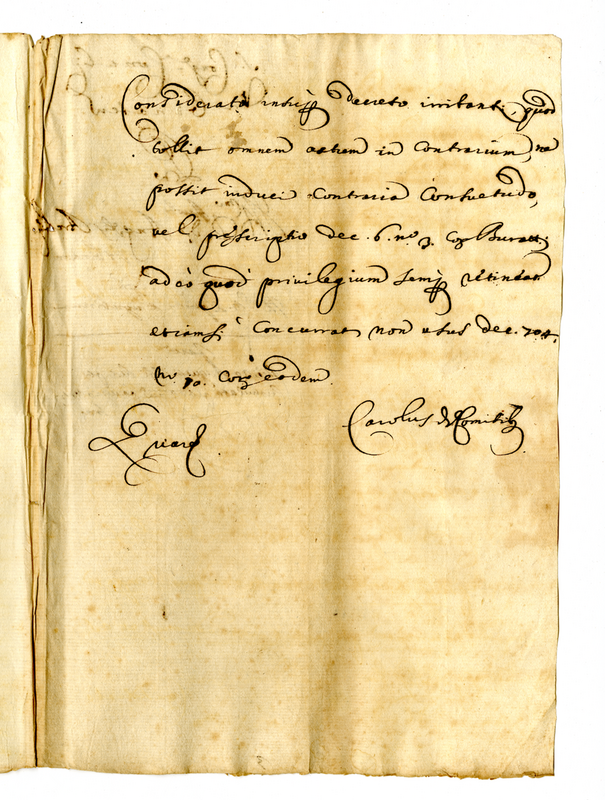 Considerato insup decreto irritanti, quod
tollit omnem actum in Contrarium, ne
possit induci Contraria Consuetudo,
vel prescriptio dec. 6. no. 3. Co Buratt;
adeo quod privilegium semp retineat
etiamsi Concurrat non usus dec. 704.
no 10. Cor eodem
Quare
Carolus de Comitib